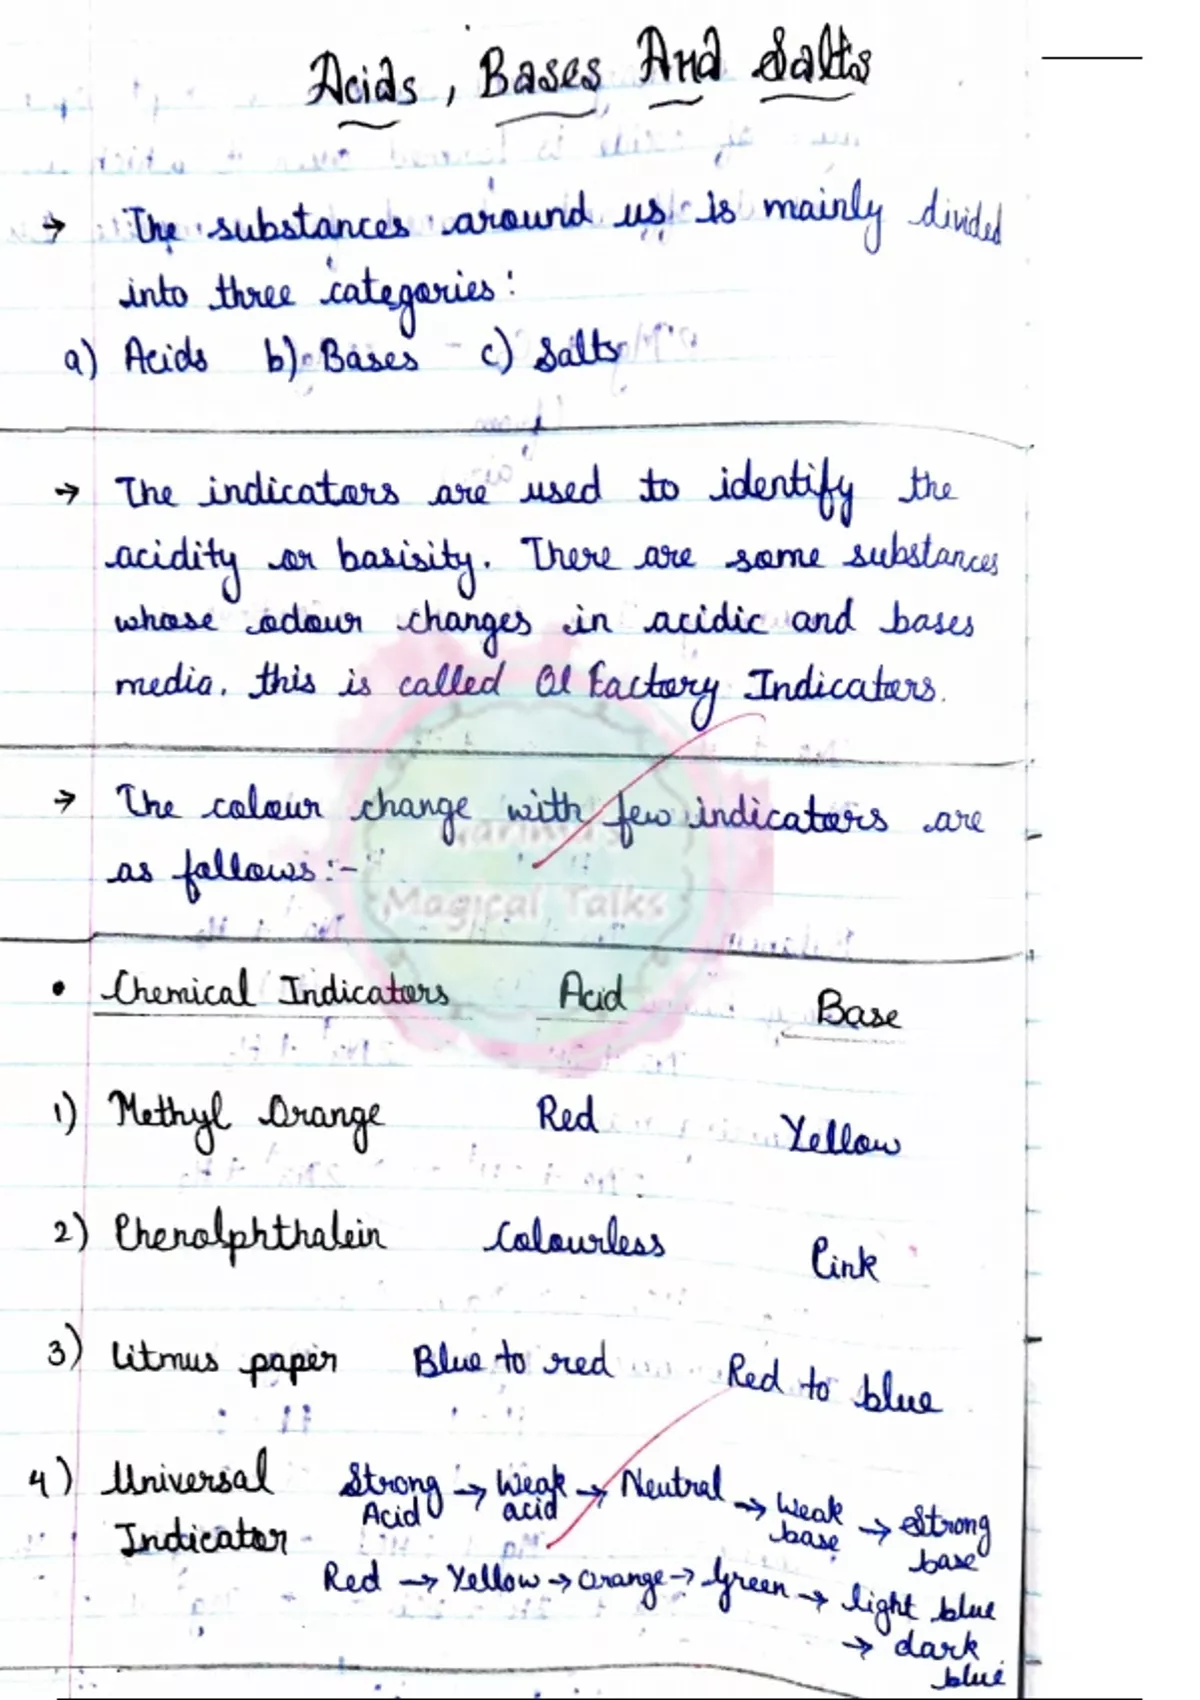 Acids, Bases And Salts
→ The substances around us is mainly divided
into three categories:
a) Acids b) Bases c) Salts
→ The indicators are used to identify the
acidity or basisity. There are some substances
whose odour changes in acidic and bases
media, this is called Ol Factory Indicators.
→ The colour change with few indicators are
as follows:-
Garima's
Magical Talks
• Chemical Indicators Acid Base
1) Methyl Orange Red Yellow
2) Phenolphthalein Colourless Pink
3) Litmus paper Blue to red Red to blue
4) Universal Strong → Weak → Neutral → Weak → Strong
Indicator Acid acid base base
Red → Yellow → orange → Green → light blue
→ dark
blue